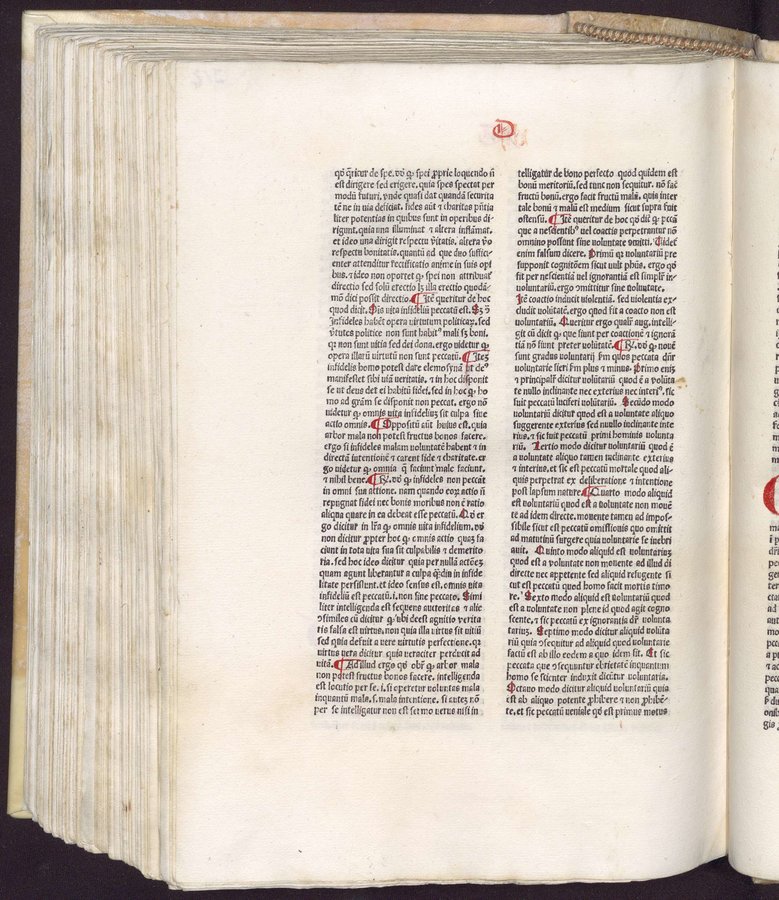 D
qđ q̄ricur de spe. dō ꝙ spei ꝓprie loquendo ñ
est dirigere sed erigere, quia spes spectat per
modū futuri, vnde quasi dat quandā securita
tē ne in via deficiat. fides aūt ⁊ charitas pūtia
liter potentias in quibus sunt in operibus di-
rigunt. quia una illuminat ⁊ altera inflāmat.
et ideo una dirigit respectu v̄itatis, altera v̄o
respectu bonitatis. quantū ad que duo suffici-
enter attenditur rectificatio anime in suis opi
bus. ⁊ ideo non oportet ꝙ spei non attribuat᷑
directio sed solū erectio lꝫ illa erectio quodā-
mō dici possit directio. ¶ Itē queritur de hoc
quod dicit. Oīs vita infideliū peccatū est. Sꝫ ↄ̄
Infideles habēt opera virtutum politicaꝝ. sed
v̄tutes politice non sunt habitꝰ mali sꝫ boni.
qꝛ non sunt vitia sed dei dona. ergo videtur ꝙ
opera illarū virtutū non sunt peccatū. ¶ Iteꝫ
infidelis homo potest dare elemosynā ut deꝰ
manifestet sibi viā veritatis. ⁊ in hoc disponit
se ut deus det ei habitū fidei. sed in hoc ꝙ ho
mo ad grām se disponit non peccat. ergo nō
videtur ꝙ omnis vita infideliuꝫ sit culpa siue
actio omnis. ¶ Oppositū aūt huius est. quia
arbor mala non potest fructus bonos facere.
ergo si infideles malam voluntatē habent ⁊ in
directā intentionē ⁊ carent fide ⁊ charitate. er
go videtur ꝙ omnia q̄ faciunt male faciunt.
⁊ nihil bene. ¶ R̄. dō ꝙ infideles non peccāt
in omni sua actione. nam quando eoꝝ actio ñ
repugnat fidei nec bonis moribus non ē ratio
aliqua quare in ea debeat esse peccatū. Qđ er
go dicitur in lr̄a ꝙ omnis vita infidelium. dō
non dicitur ꝓpter hoc ꝙ omnis actio quaꝫ fa
ciunt in tota vita sua sit culpabilis ⁊ demerito
ria. sed hoc ideo dicitur quia per nullā actōeꝫ
quam agunt liberantur a culpa qᷓdiu in infide
litate persistunt. et ideo sensus est. omnis vita
infideliū est peccatū. i. non sine peccato. Simi
liter intelligenda est sequens auctoritas ⁊ alie
ↄsimiles cū dicitur ꝙ ubi deest agnitio verita
tis falsa est virtus. non quia illa virtus sit vitiū
sed quia deficit a vere virtutis perfectione. qꝛ
virtus vera dicitur quia veraciter perducit ad
vitā. ¶ Ad illud ergo qđ obr̄ ꝙ arbor mala
non potest fructus bonos facere. intelligenda
est locutio per se. i. si operetur voluntas mala
inquantū mala. s. mala intentione. si autez nō
per se intelligatur non est sermo verus nisi in
telligatur de bono perfecto quod quidem est
bonū meritoriū. sed tunc non sequitur. nō fac̄
fructū bonū. ergo facit fructū malū. quia inter
tale bonū ⁊ malū est medium sicut supra fuit
ostensū. ¶ Itē queritur de hoc qđ dic̄ ꝙ peccā
que a nescientibꝰ vel coactis perpetrantur nō
omnino possunt sine voluntate cōmitti. Videt᷑
enim falsum dicere. Primū qꝛ voluntariū pre
supponit cognitōem sicut vult ph̄us. ergo qđ
fit per nescientiā vel ignorantiā est simplr̄ in-
voluntariū. ergo ↄmittitur sine voluntate.
Itē coactio inducit violentiā. sed violentia ex-
cludit volūtatē. ergo quod fit a coacto non est
voluntariū. Queritur ergo qualr̄ aug. intelli-
git cū dicit ꝙ que fiunt per coactionē ⁊ ignorā
tiā nō fiunt preter volūtatē. ¶ R̄. dō ꝙ nouē
sunt gradus voluntarij ẜm quos peccata dn̄r
voluntarie fieri ẜm plus ⁊ minus. Primo eniꝫ
⁊ principalr̄ dicitur volūtariū quod ē a volūta
te nullo inclinante nec exterius nec interiꝰ. sic
fuit peccatū luciferi volūtariū. Secūdo modo
voluntariū dicitur quod est a voluntate aliquo
suggerente exterius sed nullo inclinante inte
rius. ⁊ sic fuit peccatū primi hominis volunta
riū. Tertio modo dicitur voluntariū quod ē
a voluntate aliquo tamen inclinante exterius
⁊ interius. et sic est peccatū mortale quod ali-
quis perpetrat ex deliberatione ⁊ intentione
post lapsum nature. ¶ Quarto modo aliquid
est voluntariū quod est a voluntate non mouē
te ad idem directe. mouente tamen ad impos-
sibile sicut est peccatū omissionis quo omittit
ad matutinū surgere quia voluntarie se inebri
auit. Quinto modo aliquid est voluntariuꝫ
quod est a voluntate non mouente ad illud di
directe nec appetente sed aliquid refugente si
cut est peccatū quod homo facit mortis timo
re. Sexto modo aliquid est voluntariū quod
est a voluntate non plene id quod agit cogno
scente. ⁊ sic peccatū ex ignorantia dr̄ volunta
tariuꝫ. Septimo modo dicitur aliquid volūta
riū quia ↄsequitur ad aliquid quod voluntarie
factū est ab illo eodem a quo idem fit. Et sic
peccata que ↄsequuntur ebrietatē inquantum
homo se scienter induxit dicūtur voluntaria.
Octauo modo dicitur aliquid voluntariū quia
est ab aliquo potente ꝓhibere ⁊ non ꝓhibē-
te. et sic peccatū veniale qđ est primus motus